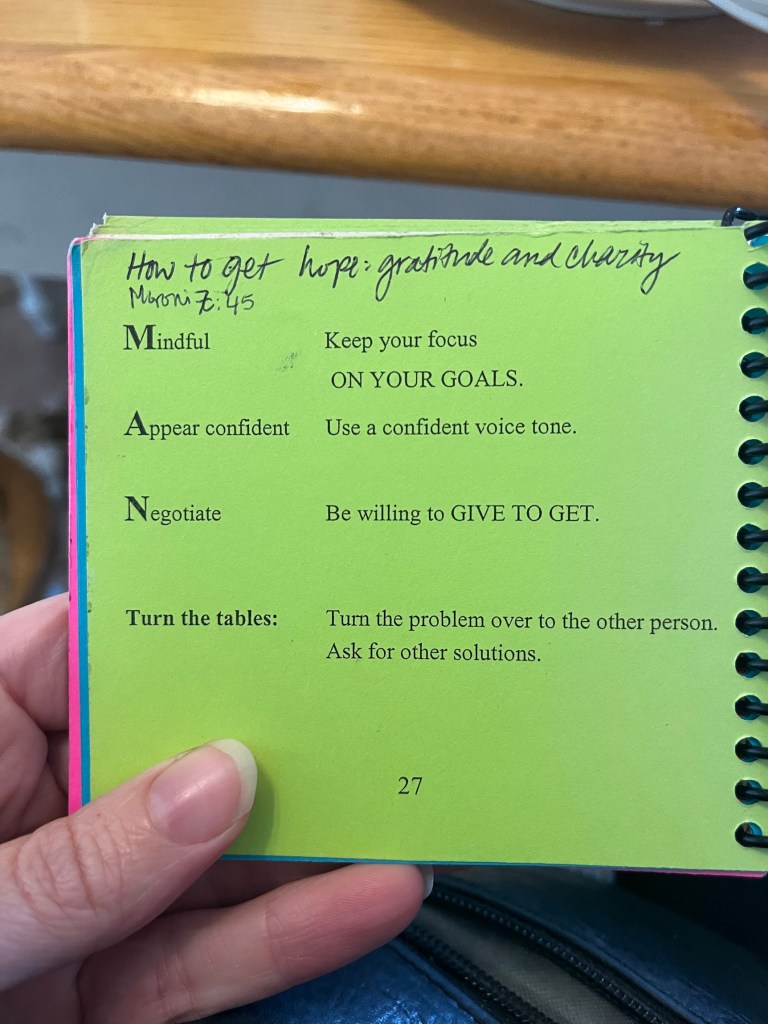 How to get hope: gratitude and charity
Moroni 7:45
Mindful Keep your focus
ON YOUR GOALS.
Appear confident Use a confident voice tone.
Negotiate Be willing to GIVE TO GET.
Turn the tables: Turn the problem over to the other person.
Ask for other solutions.
27